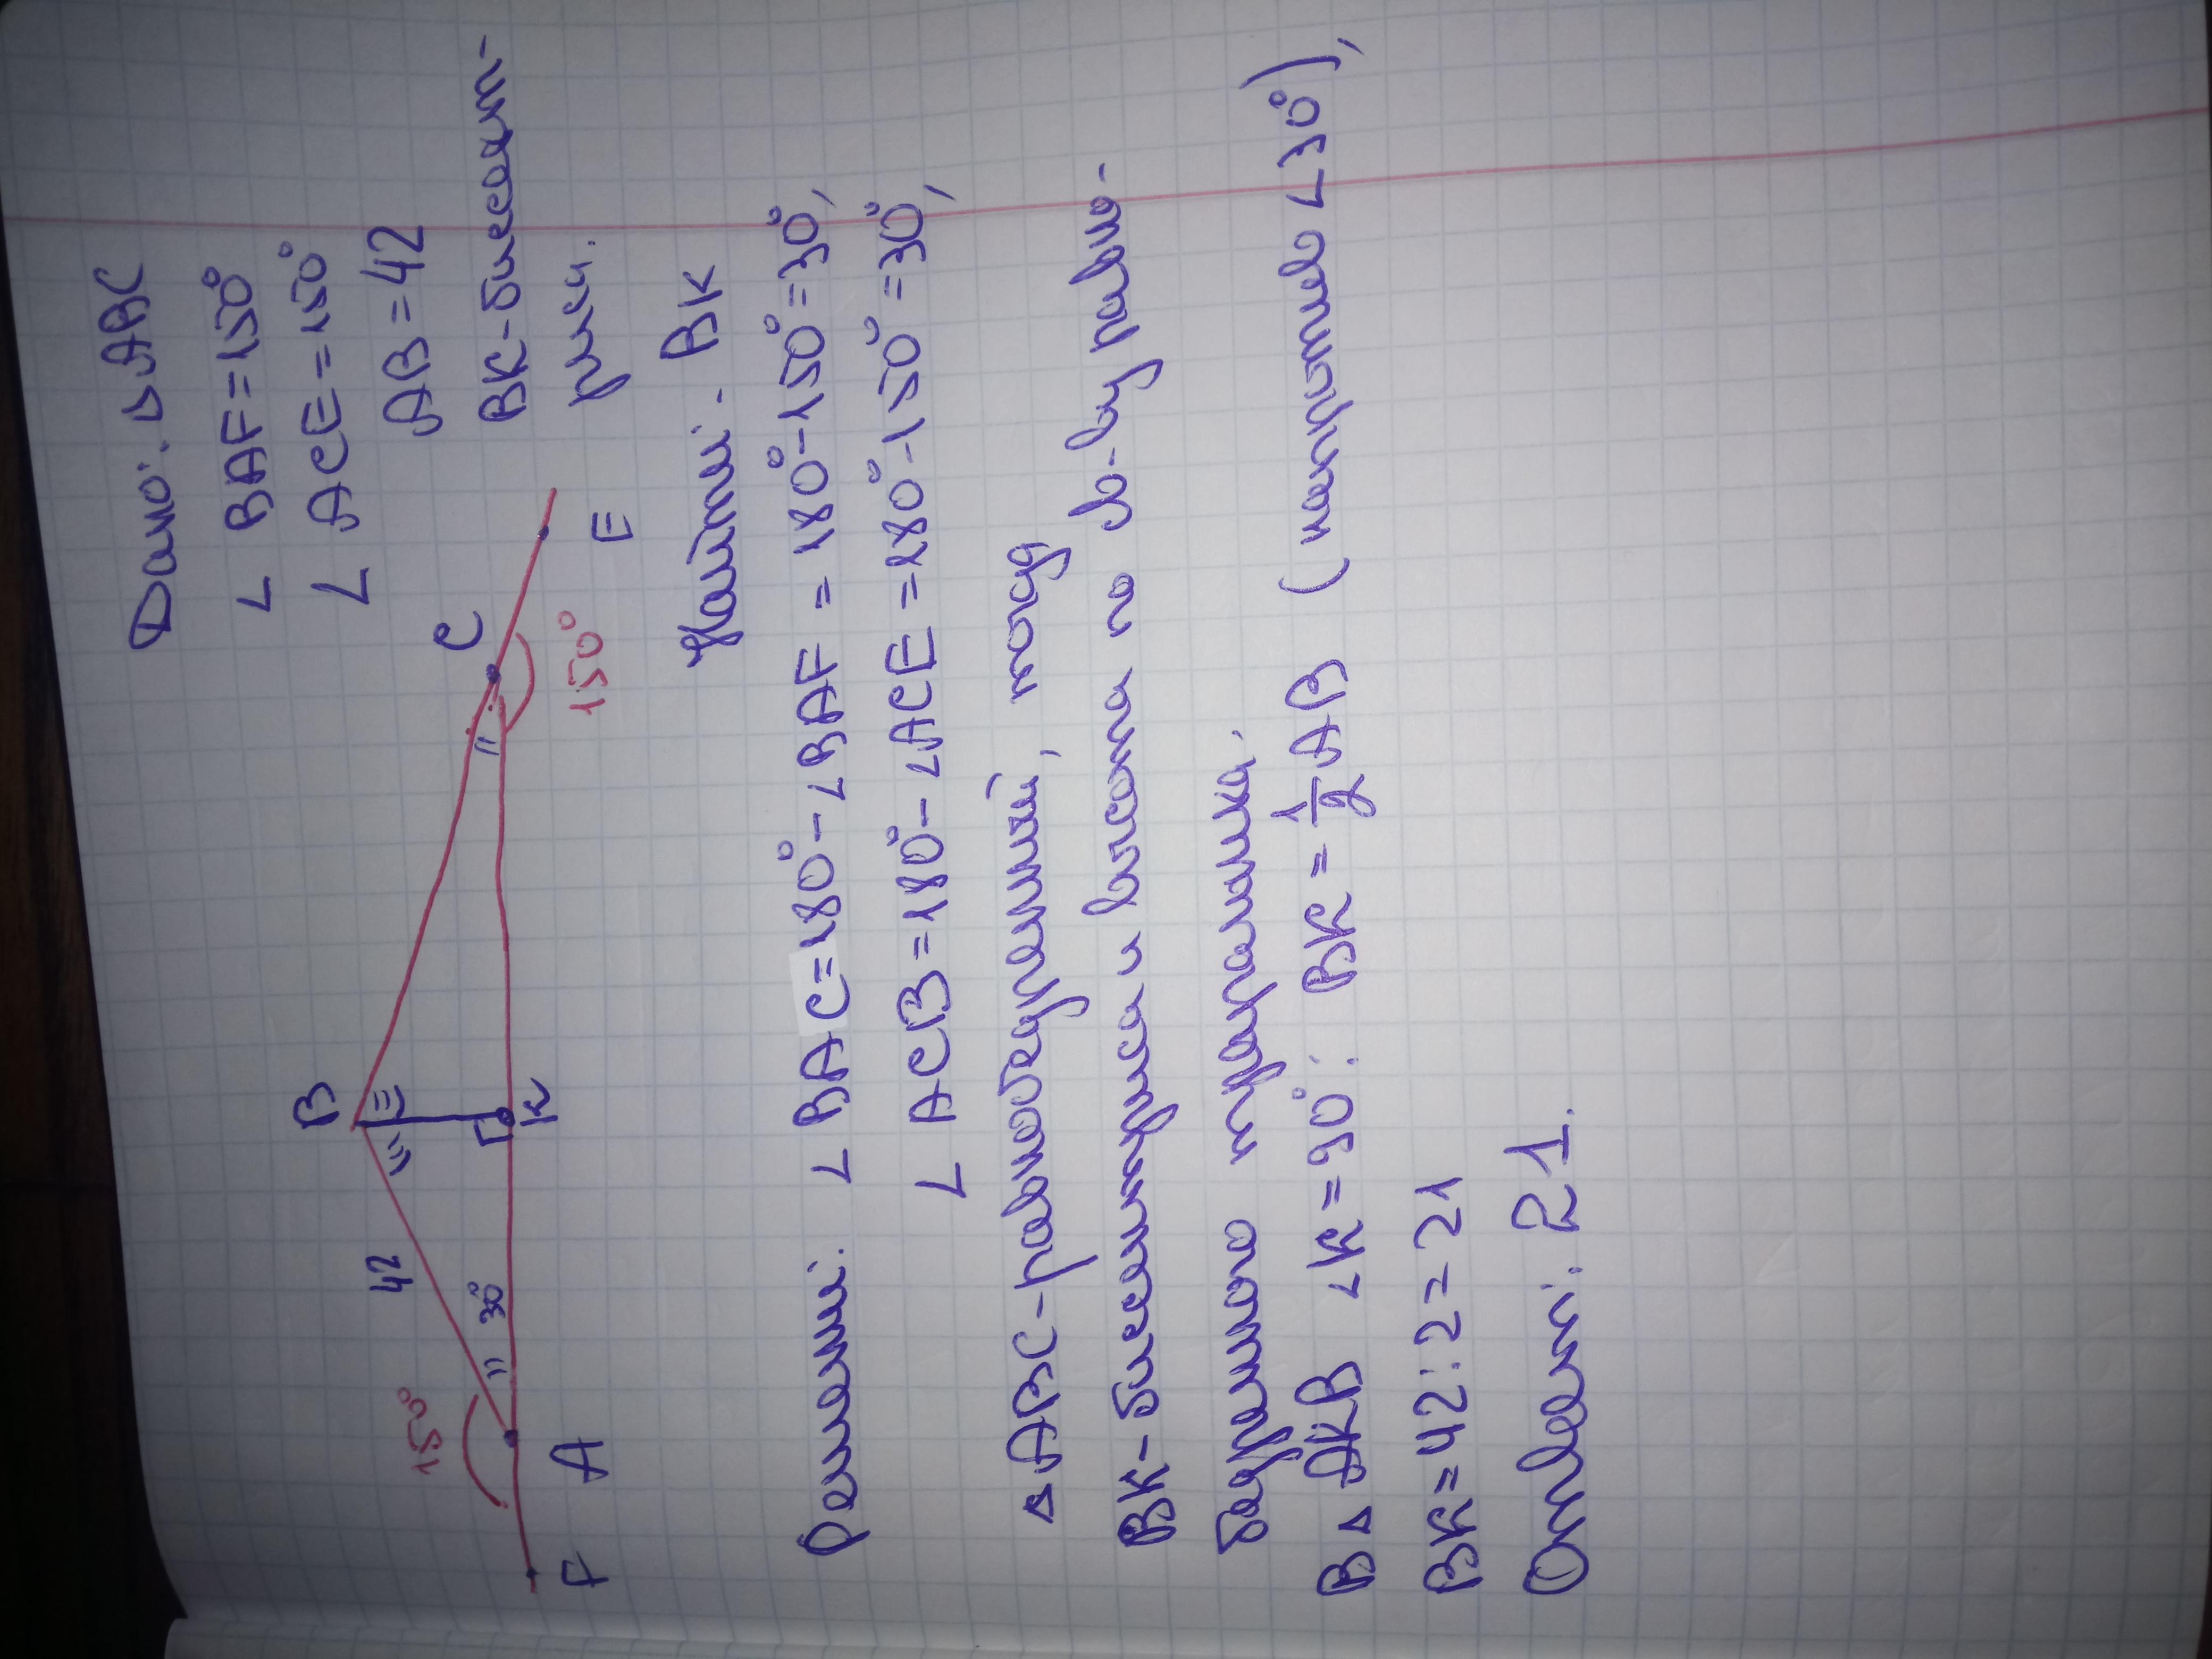 Дано: △ABC
∠ BAF = 150°
∠ ACE = 150°
AB = 42
BK - биссект-
риса.
Найти: BK
B
C
E
150°
42
150°
30°
K
F
A
Решение: ∠ BAC = 180° - ∠BAF = 180° - 150° = 30°,
∠ ACB = 180° - ∠ACE = 180° - 150° = 30°,
△ABC - равнобедренный, тогда
BK - биссектриса и высота по св-ву равно-
бедренного треугольника.
В △ AKB ∠K = 90°: BK = 1/2 AB (катет против ∠30°),
BK = 42 : 2 = 21
Ответ: 21.